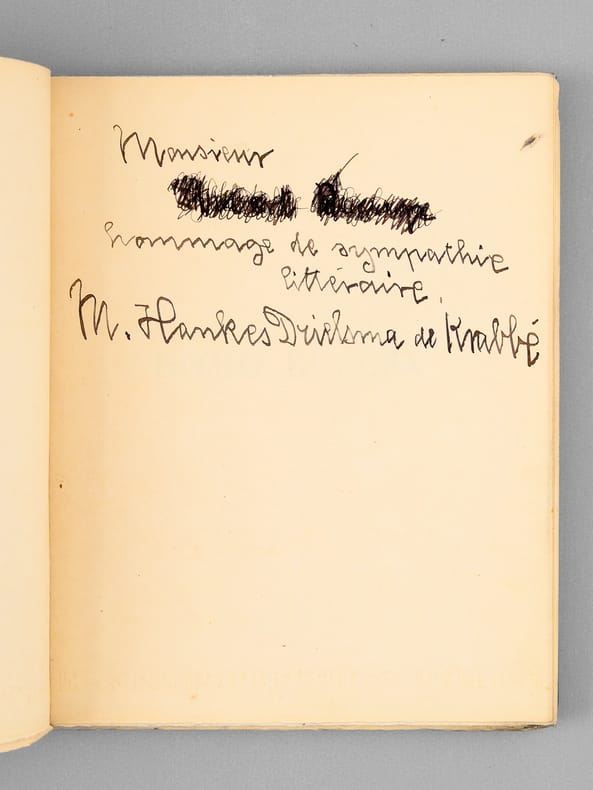 Monsieur
hommage de sympathie
littéraire.
M. Hankes Drielsma de Krabbé